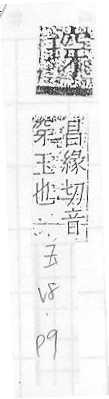 瑏
昌緣切音
穿玉也
V8.
P9